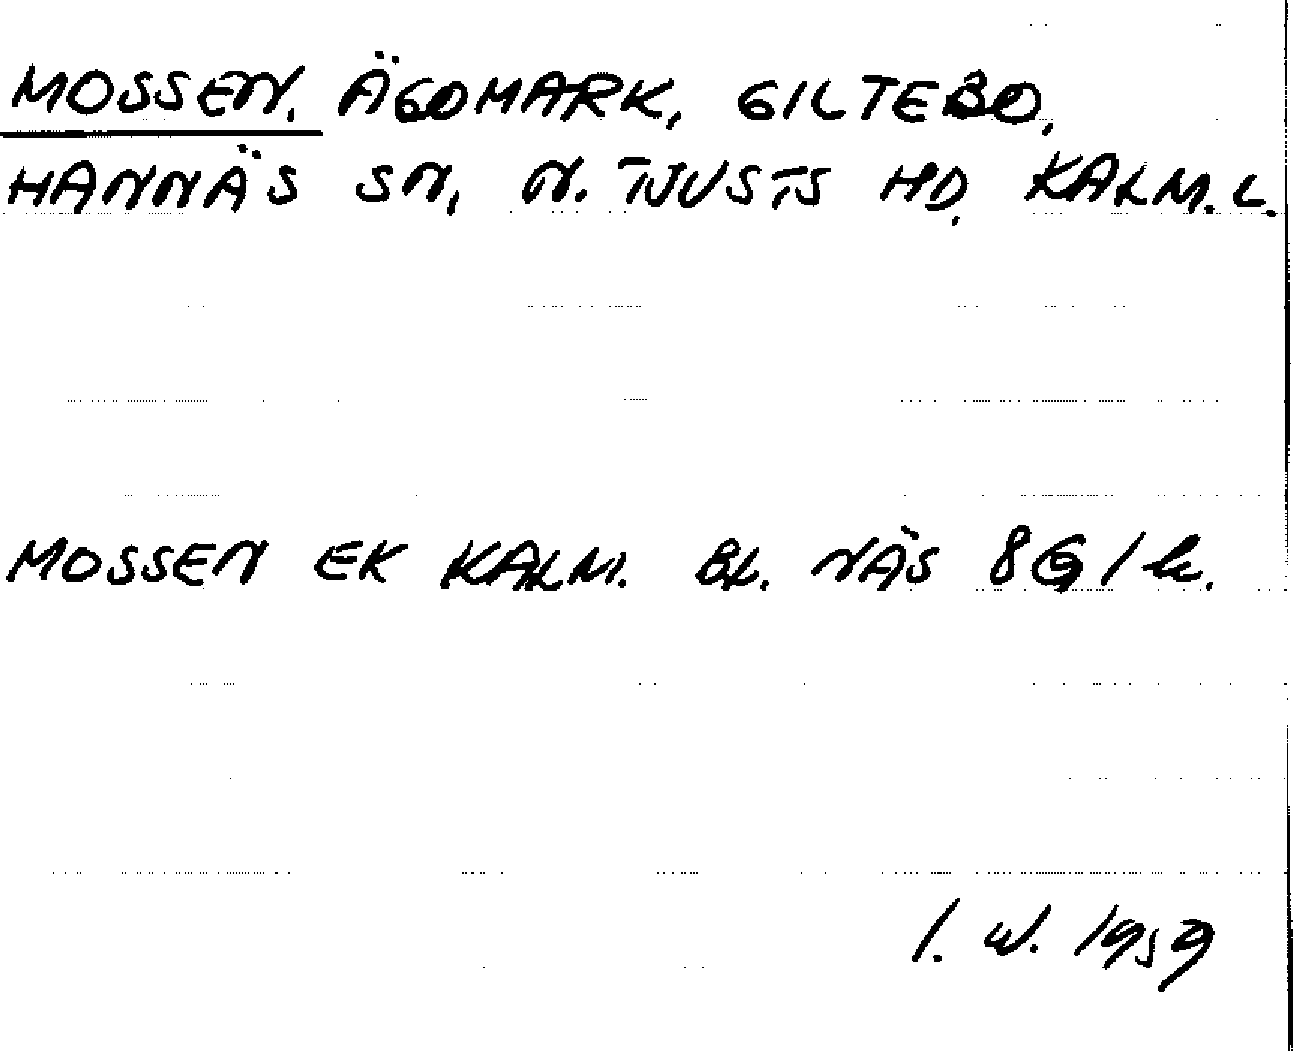 MOSSEN. ÄGOMARK, GILTEBO,
HANNÄS SN, N. TJUSTS HD, KALM. L.
MOSSEN EK KALM. BL. NÄS 8G/k.
I. W. 1959